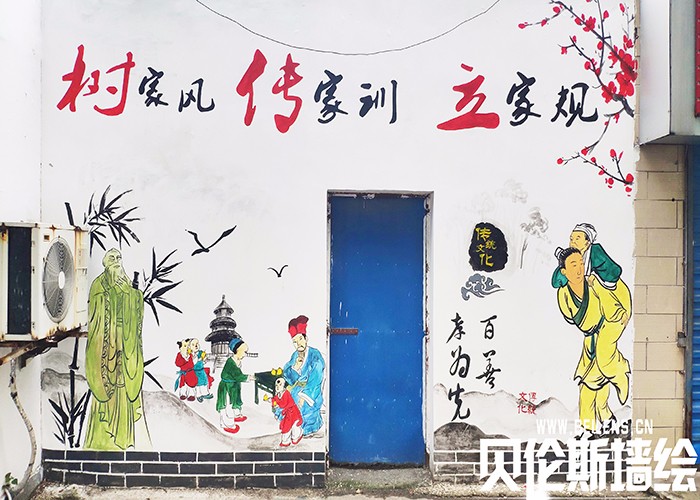 树家风 传家训 立家规
传统
文化
百善
孝为先
传统
文化
WWW.BEILENS.CN
贝伦斯墙绘